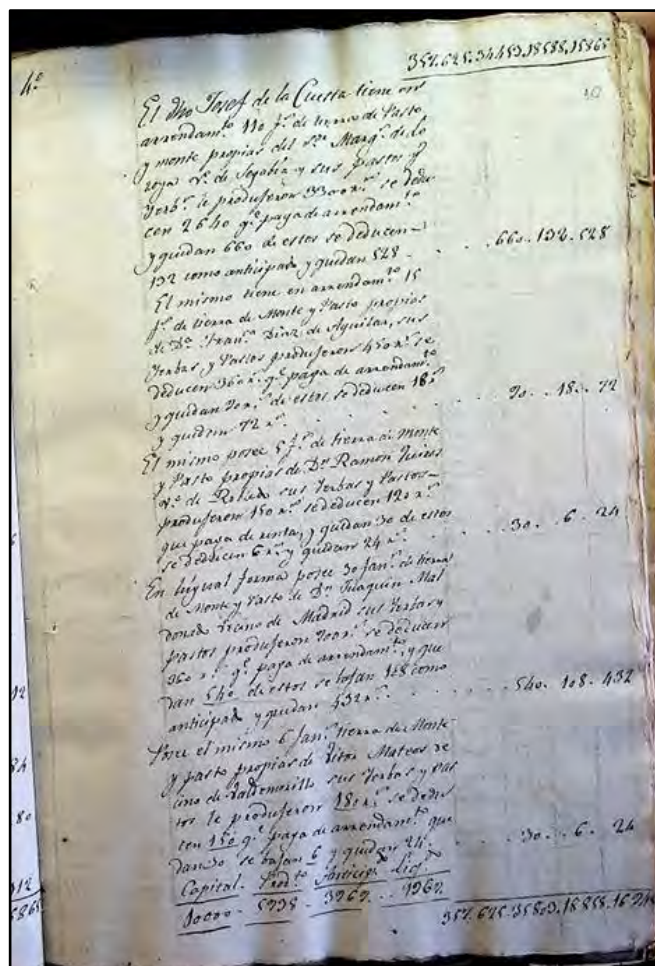 4º
357.625.34453.18588.15865
El dho Josef de la Cuesta tiene en
arrendamto 110 fs de tierra de Pasto
y monte propias del Sr Marqs de lo
zoya vo de Segobia y sus pastos y
yerbs le produjeron 3300 rs se dedu
cen 2640 qe paga de arrendamto
y quedan 660 de estos se deducen
132 como anticipado y quedan 528 . . . 660. 132. 528
El mismo tiene en arrendamto 15
fs de tierra de Monte y Pasto propias
de Dn Franco Diaz de Aguilar, sus
Yerbas y Pastos produjeron 450 rs se
deducen 360 rs qe paga de arrendamto
y quedan 90 rs de estos se deducen 18 rs
y quedan 72 rs . . . 90. . 18. . 72
El mismo posee 5 fs de tierra de Monte
y Pasto propias de Dn Ramon
vo de sus Yerbas y Pastos
produjeron 150 rs se deducen 120 rs
que paga de renta, y quedan 30 de estos
se deducen 6 rs y quedan 24 rs . . . 30. . 6. . 24
En la ygual forma posee 30 fans de tierra
de Monte y Pasto de Dn Juaquin Mal
donado Vecino de Madrid sus Yerbas y
Pastos produjeron 900 rs se deducen
360 rs qe paga de arrendamto, y que
dan 540 de estos se bajan 108 como
anticipado y quedan 432 rs . . . 540. 108. 432
Posee el mismo 6 fans tierra de Monte
y pasto propias de Vitor Mateos ve
cino de Valdemorillo sus Yerbas y Pas
tos le produjeron 180 rs se dedu
cen 150 qe paga de arrendamto que
dan 30 se bajan 6 y quedan 24 . . . 30. . 6. . 24
Capital. Prodto Liqdo
3967. . 1967
357.625.35803.18858.16945